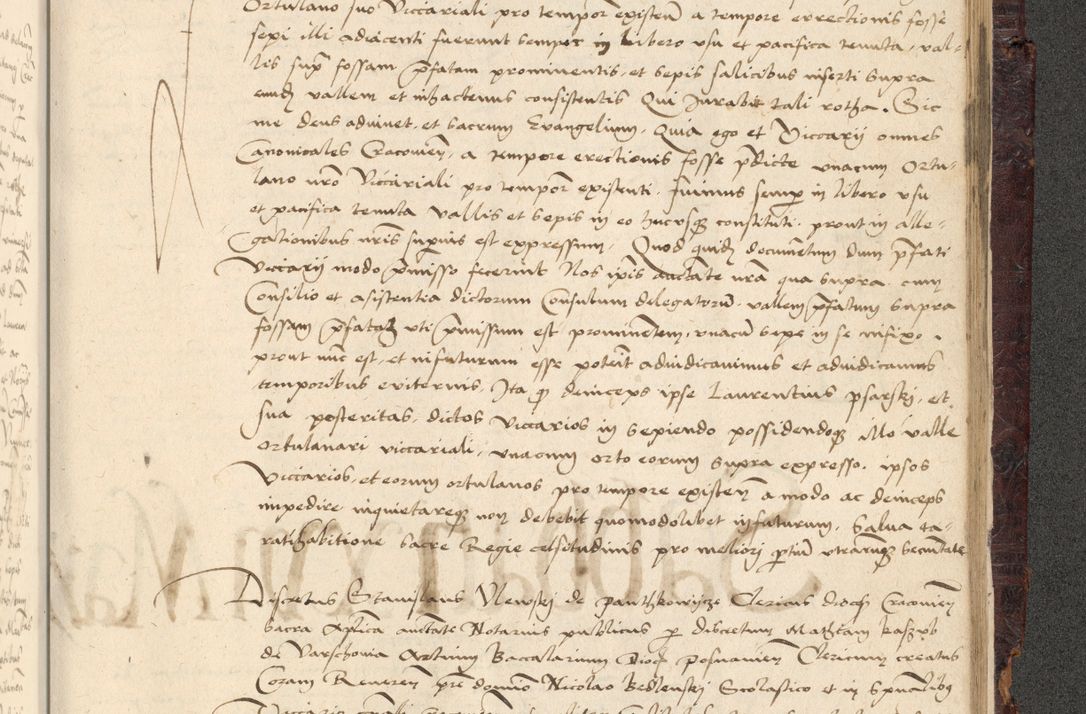 Ortulano suo Viccariali pro tempor existen a tempore errectionis fosse
sepi illi adiacenti fuerunt semper in libero vsu et pacifica tenuta, val-
lis supra fossam pfatam prominentis, et sepis salicibus inserti supra
eundem vallem et inhactenus consistentis Qui Jurabit tali rotha. Sic
me deus adiuuet, et sacrum Evangelium. Quia ego et Viccarij omnes
Canonicales Cracouien, a tempore erectionis fosse pdicte vnacum Ortu-
lano nro Viccariali pro tempor existenti, fuimus semper in libero vsu
et pacifica tenuta vallis et sepis in eo hucusque constituti, prout in alle-
gationibus nris superius est expressum. Quod quidem documentum dum pfati
Viccarij modo pmisso fecerint Nos ipsis auctate nra qua supra cum
Consilio et asistentia dictorum Consulum delegatoru, vallem pfatum supra
fossam pfatam vti pmissum est prominentem, vnacu sepe in se infixo,
prout nuc est, et infuturum esse poterit adiudicauimus et adiudicamus
temporibus eviternis, Ita q deinceps ipse Laurentius psarski, et
sua posteritas, dictos Viccarios in sepiendo possidendoque illo valle
ortulanari viccariali, vnacum orto eorum supra expresso, ipsos
Viccarios, et eorum ortulanos pro tempore existen a modo ac deinceps
impedire inquietareque non debebit quomodolibet infuturum, Salua ta-
ratihabitione sacre Regie celsitudinis pro meliori ptium vtrarumque securitate
Discretus Stanislaus Vlewski de panthkowycze Clericus dioc Cracouien
sacra Aplica auctate Notarius publicus p discretum Mathiam kaszub
de Varschouia Artium Baccalarium Dioc posnanien Clericum creatus
Coram Reueren pre domino Nicolao Bedlenski Scolastico et in spualibus